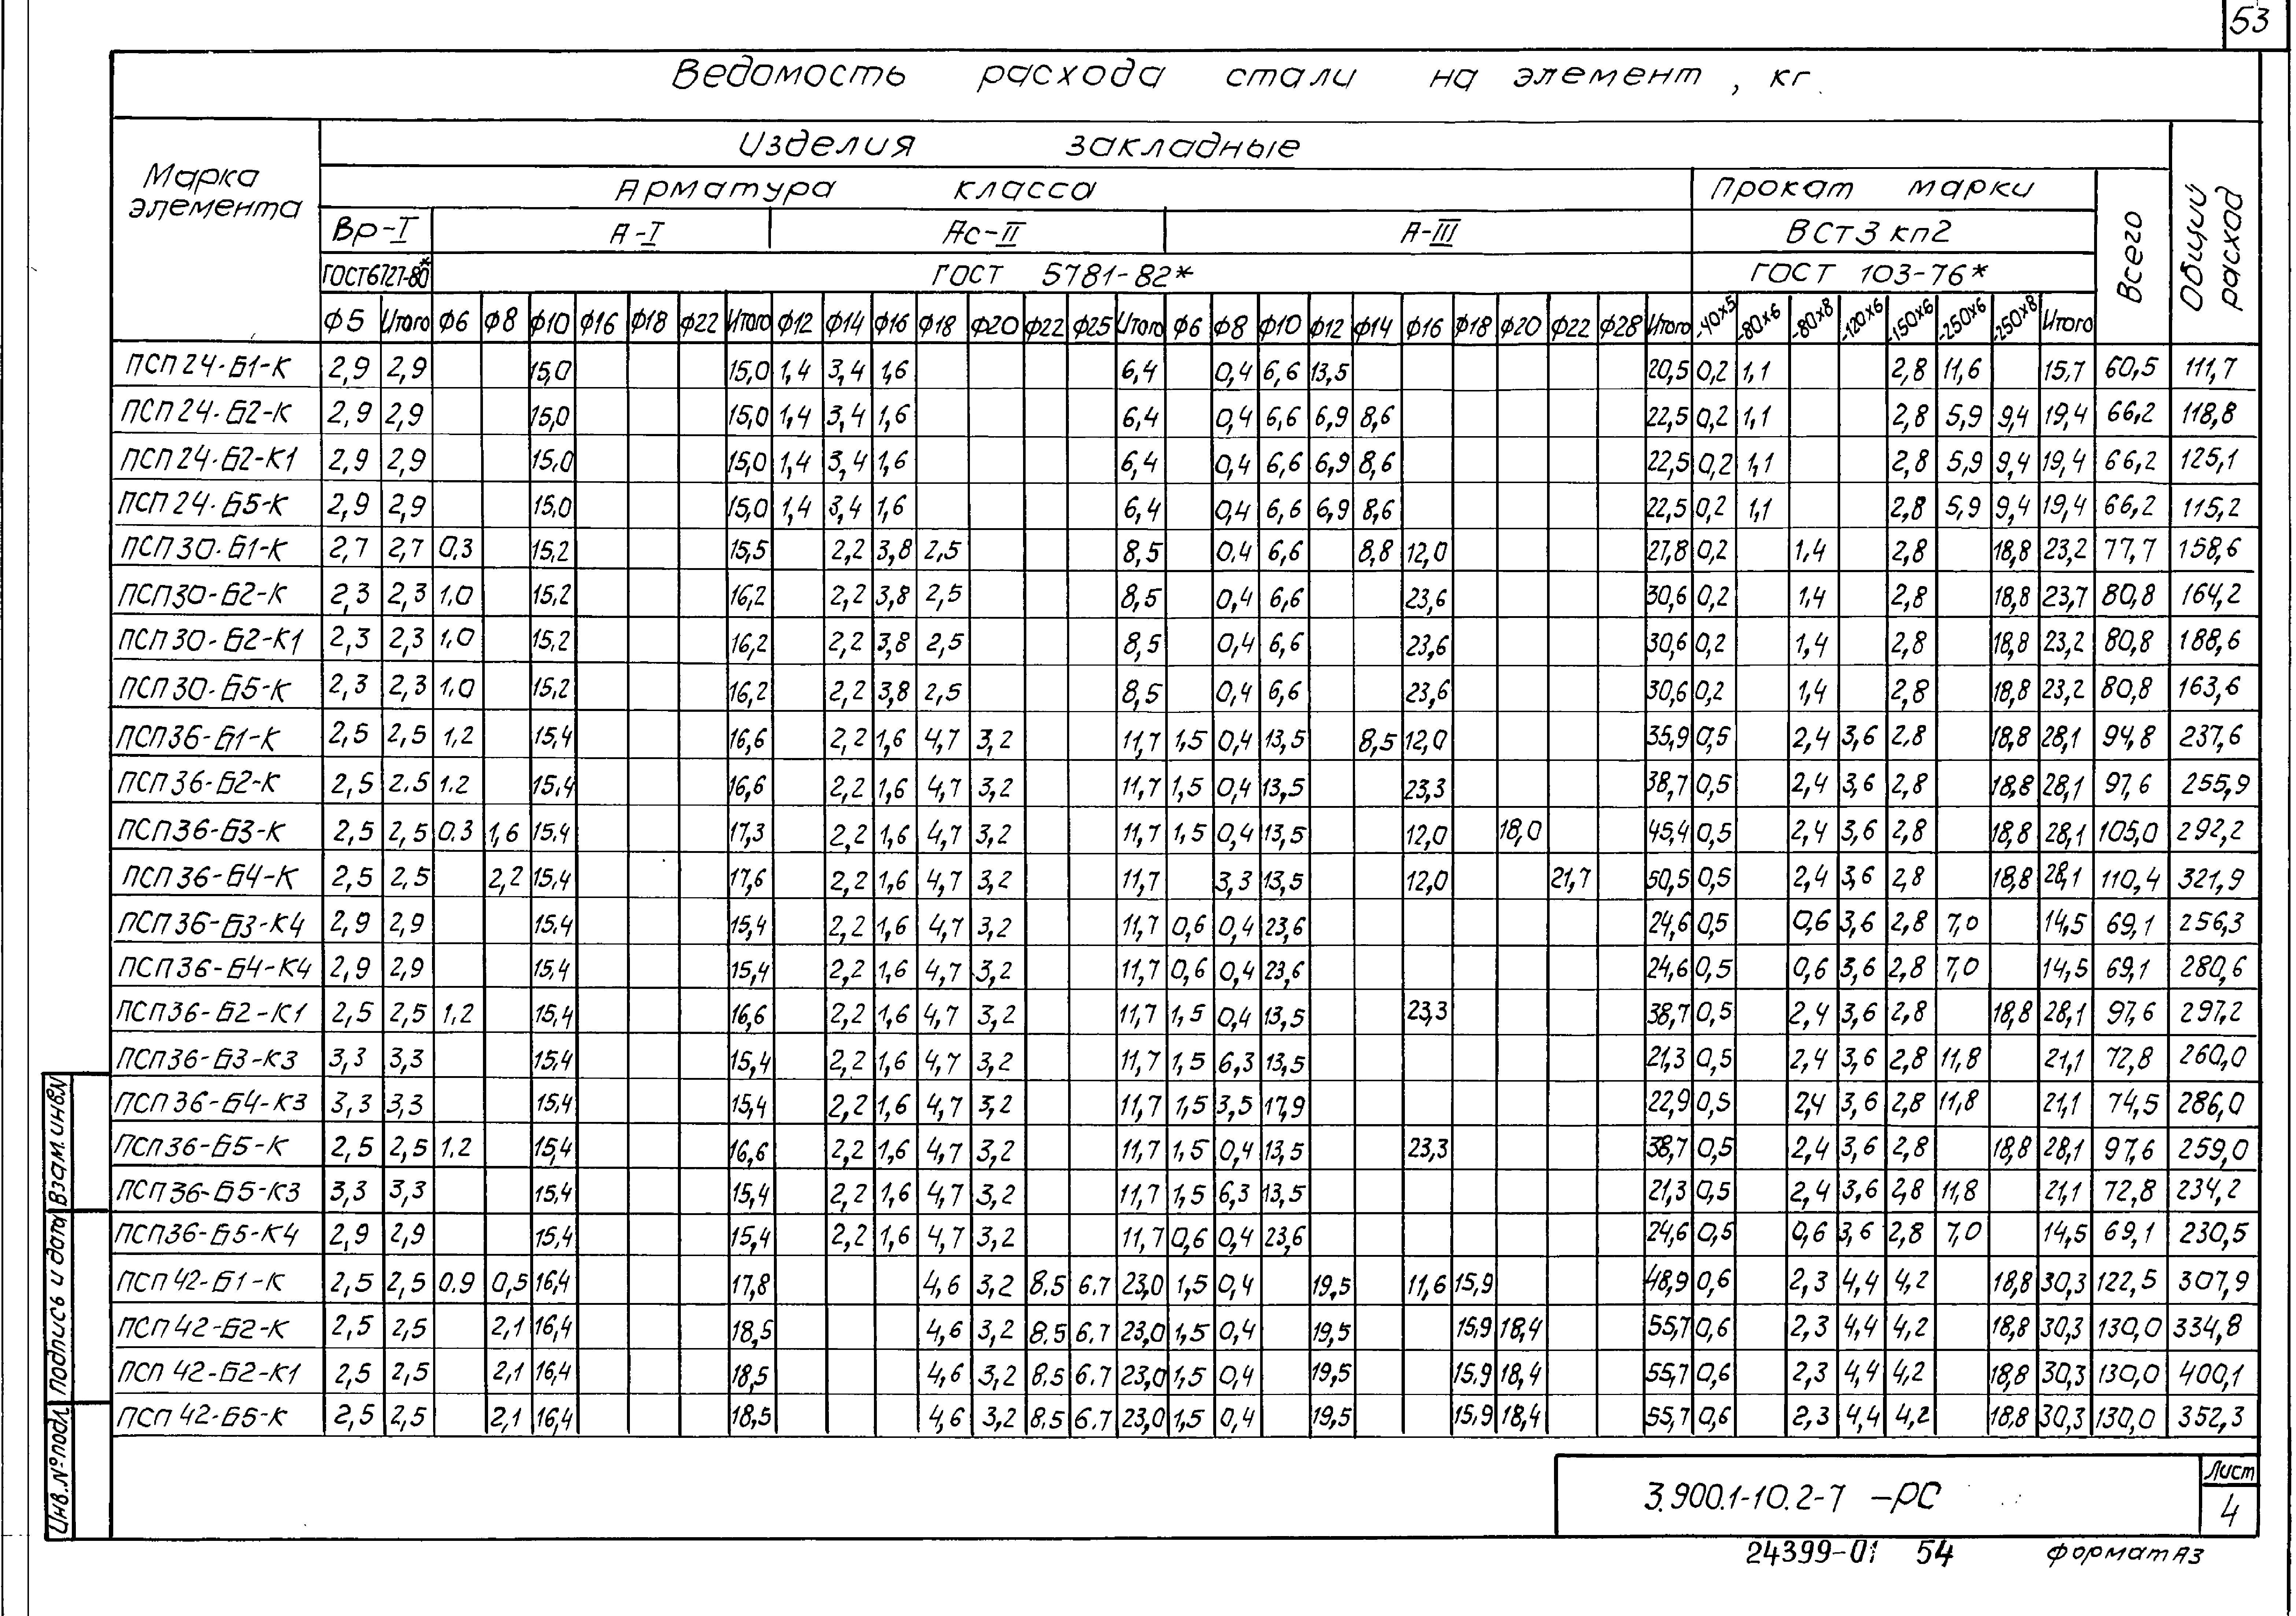 53
Ведомость расхода стали на элемент, кг.
Марка элемента
Изделия закладные
Арматура класса
Прокат марки
Всего
Общий расход
Вр-I А-I Ас-II А-III ВСт3кп2
ГОСТ6727-80* ГОСТ 5781-82* ГОСТ 103-76*
Ф5 Итого Ф6 Ф8 Ф10 Ф16 Ф18 Ф22 Итого Ф12 Ф14 Ф16 Ф18 Ф20 Ф22 Ф25 Итого Ф6 Ф8 Ф10 Ф12 Ф14 Ф16 Ф18 Ф20 Ф22 Ф28 Итого -40×5 -80×6 -80×8 -120×6 -150×6 -250×6 -250×8 Итого
ПСП24-Б1-К 2,9 2,9 15,0 15,0 1,4 3,4 1,6 6,4 0,4 6,6 13,5 20,5 0,2 1,1 2,8 11,6 15,7 60,5 111,7
ПСП24-Б2-К 2,9 2,9 15,0 15,0 1,4 3,4 1,6 6,4 0,4 6,6 6,9 8,6 22,5 0,2 1,1 2,8 5,9 9,4 19,4 66,2 118,8
ПСП24-Б2-К1 2,9 2,9 15,0 15,0 1,4 3,4 1,6 6,4 0,4 6,6 6,9 8,6 22,5 0,2 1,1 2,8 5,9 9,4 19,4 66,2 125,1
ПСП24-Б5-К 2,9 2,9 15,0 15,0 1,4 3,4 1,6 6,4 0,4 6,6 6,9 8,6 22,5 0,2 1,1 2,8 5,9 9,4 19,4 66,2 115,2
ПСП30-Б1-К 2,7 2,7 0,3 15,2 15,5 2,2 3,8 2,5 8,5 0,4 6,6 8,8 12,0 27,8 0,2 1,4 2,8 18,8 23,2 77,7 158,6
ПСП30-Б2-К 2,3 2,3 1,0 15,2 16,2 2,2 3,8 2,5 8,5 0,4 6,6 23,6 30,6 0,2 1,4 2,8 18,8 23,7 80,8 164,2
ПСП30-Б2-К1 2,3 2,3 1,0 15,2 16,2 2,2 3,8 2,5 8,5 0,4 6,6 23,6 30,6 0,2 1,4 2,8 18,8 23,2 80,8 188,6
ПСП30-Б5-К 2,3 2,3 1,0 15,2 16,2 2,2 3,8 2,5 8,5 0,4 6,6 23,6 30,6 0,2 1,4 2,8 18,8 23,2 80,8 163,6
ПСП36-Б1-К 2,5 2,5 1,2 15,4 16,6 2,2 1,6 4,7 3,2 11,7 1,5 0,4 13,5 8,5 12,0 35,9 0,5 2,4 3,6 2,8 18,8 28,1 94,8 237,6
ПСП36-Б2-К 2,5 2,5 1,2 15,4 16,6 2,2 1,6 4,7 3,2 11,7 1,5 0,4 13,5 23,3 38,7 0,5 2,4 3,6 2,8 18,8 28,1 97,6 255,9
ПСП36-Б3-К 2,5 2,5 0,3 1,6 15,4 17,3 2,2 1,6 4,7 3,2 11,7 1,5 0,4 13,5 12,0 18,0 45,4 0,5 2,4 3,6 2,8 18,8 28,1 105,0 292,2
ПСП36-Б4-К 2,5 2,5 2,2 15,4 17,6 2,2 1,6 4,7 3,2 11,7 3,3 13,5 12,0 21,7 50,5 0,5 2,4 3,6 2,8 18,8 28,1 110,4 321,9
ПСП36-Б3-К4 2,9 2,9 15,4 15,4 2,2 1,6 4,7 3,2 11,7 0,6 0,4 23,6 24,6 0,5 0,6 3,6 2,8 7,0 14,5 69,1 256,3
ПСП36-Б4-К4 2,9 2,9 15,4 15,4 2,2 1,6 4,7 3,2 11,7 0,6 0,4 23,6 24,6 0,5 0,6 3,6 2,8 7,0 14,5 69,1 280,6
ПСП36-Б2-К1 2,5 2,5 1,2 15,4 16,6 2,2 1,6 4,7 3,2 11,7 1,5 0,4 13,5 23,3 38,7 0,5 2,4 3,6 2,8 18,8 28,1 97,6 297,2
ПСП36-Б3-К3 3,3 3,3 15,4 15,4 2,2 1,6 4,7 3,2 11,7 1,5 6,3 13,5 21,3 0,5 2,4 3,6 2,8 11,8 21,1 72,8 260,0
ПСП36-Б4-К3 3,3 3,3 15,4 15,4 2,2 1,6 4,7 3,2 11,7 1,5 3,5 17,9 22,9 0,5 2,4 3,6 2,8 11,8 21,1 74,5 286,0
ПСП36-Б5-К 2,5 2,5 1,2 15,4 16,6 2,2 1,6 4,7 3,2 11,7 1,5 0,4 13,5 23,3 38,7 0,5 2,4 3,6 2,8 18,8 28,1 97,6 259,0
ПСП36-Б5-К3 3,3 3,3 15,4 15,4 2,2 1,6 4,7 3,2 11,7 1,5 6,3 13,5 21,3 0,5 2,4 3,6 2,8 11,8 21,1 72,8 234,2
ПСП36-Б5-К4 2,9 2,9 15,4 15,4 2,2 1,6 4,7 3,2 11,7 0,6 0,4 23,6 24,6 0,5 0,6 3,6 2,8 7,0 14,5 69,1 230,5
ПСП42-Б1-К 2,5 2,5 0,9 0,5 16,4 17,8 4,6 3,2 8,5 6,7 23,0 1,5 0,4 19,5 11,6 15,9 48,9 0,6 2,3 4,4 4,2 18,8 30,3 122,5 307,9
ПСП42-Б2-К 2,5 2,5 2,1 16,4 18,5 4,6 3,2 8,5 6,7 23,0 1,5 0,4 19,5 15,9 18,4 55,7 0,6 2,3 4,4 4,2 18,8 30,3 130,0 334,8
ПСП42-Б2-К1 2,5 2,5 2,1 16,4 18,5 4,6 3,2 8,5 6,7 23,0 1,5 0,4 19,5 15,9 18,4 55,7 0,6 2,3 4,4 4,2 18,8 30,3 130,0 400,1
ПСП42-Б5-К 2,5 2,5 2,1 16,4 18,5 4,6 3,2 8,5 6,7 23,0 1,5 0,4 19,5 15,9 18,4 55,7 0,6 2,3 4,4 4,2 18,8 30,3 130,0 352,3
Взам.инв.N
Подпись и дата
Инв.N°подл.
3.900.1-10.2-7 -РС
Лист
4
24399-01 54
формат А3